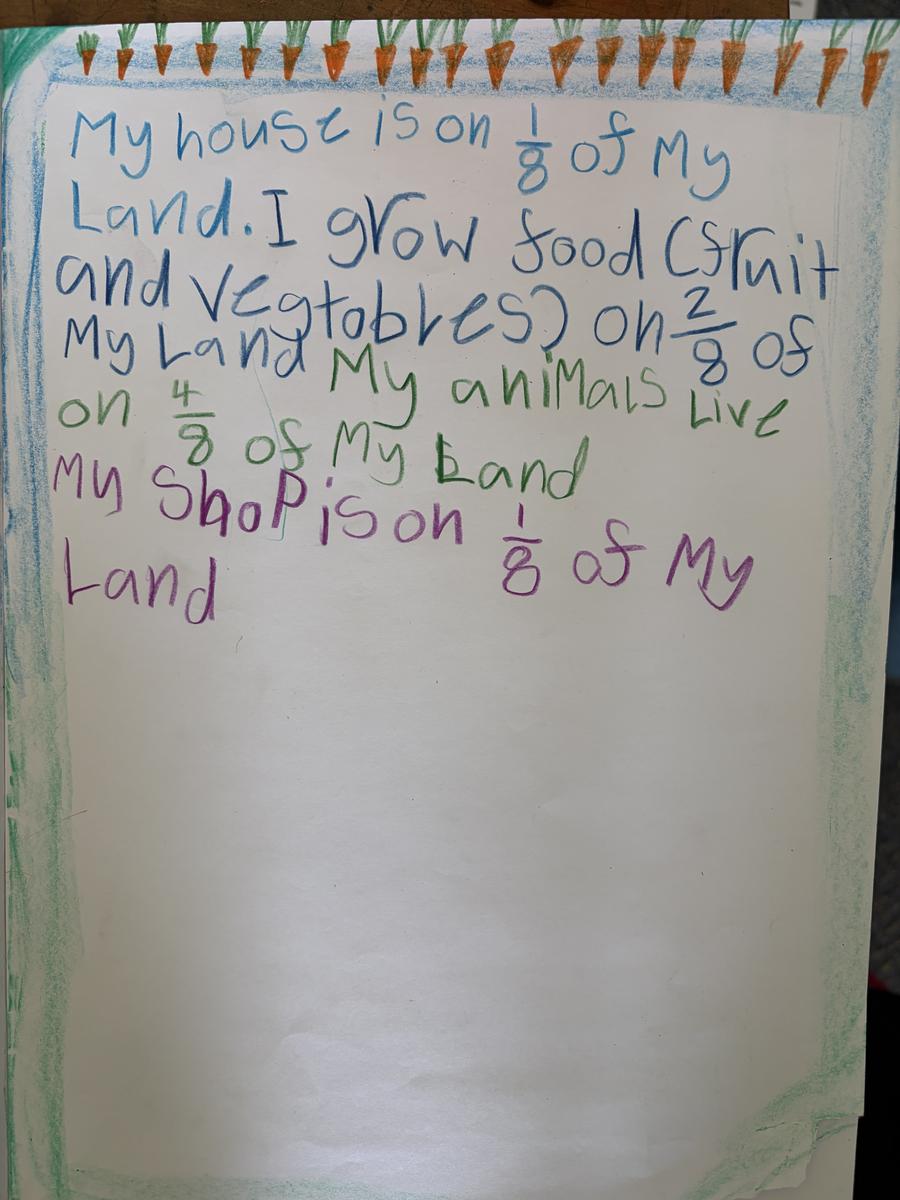 My house is on 1/8 of My
Land. I grow food (fruit
and vegtables) on 2/8 of
My Land My animals Live
on 4/8 of My Land
My shop is on 1/8 of My
Land